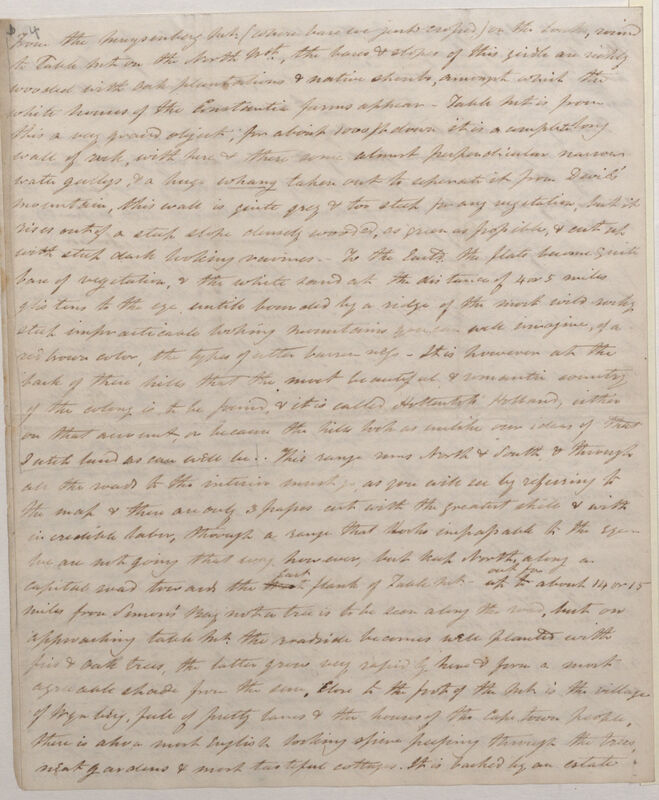 4
from the Muysenberg Mts (where base we just croped) on the South, round
to Table Mt on the North Wt, the bases & slopes of this girdle are richly
wooded with oak plantations & native shrubs, amongst which the
white houses of the Constantia farms appear - Table Mt is from
this a very grand object, for about 1000 ft down it is a complete long
wall of rock, with here & there some almost perpendicular narrow
water gulleys, & a huge whang taken out to seperate it from Devil's
mountain, this wall is quite grey & too steep for any vegetation, but it
rises out of a steep slope densely wooded, as green as possible, & cut up
with steep dark looking ravines - To the East the flats become quite
bare of vegetation, & the white sand at the distance of 4 or 5 miles
glistens to the eye untile bounded by a ridge of the most wild rocky
steep impracticable looking mountains you can well imagine, of a
red brown color, the types of utter barrenness - It is however at the
back of these hills that the most beautiful & romantic country
of the colony is to be found, & it is called Hottentots Holland, either
on that account, or because the hills look as unlike our ideas of that
Dutch land as can well be.. This range runs North & South & through
all the roads to the interior must go as you will see by refering to
the map & there are only 3 passes cut with the greatest skill & with
incredible labor, through a range that looks impassable to the eye -
We are not going that way however, but keep North, along a
capital road towards the East flank of Table Mt - out for up to about 14 or 15
miles from Simon's Bay not a tree is to be seen along the road, but on
approaching table Mt the roadside becomes well planted with
firs & oak trees, the latter grows very rapidly here & form a most
agreeable shade from the sun, Close to the foot of the Mt is the village
of Wynberg, full of pretty lanes & the houses of the Cape town people,
there is also a most English looking spire peeping through the trees,
neat gardens & most tasteful cottages. It is backed by an estate